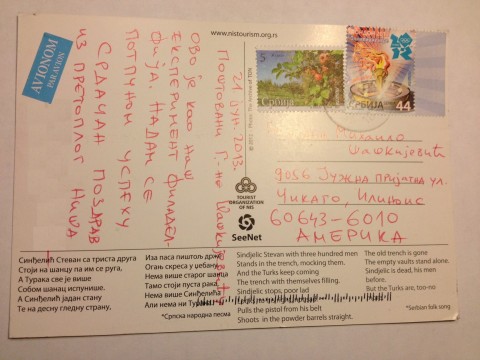 AVIONOM
PAR AVION
www.nistourism.org.rs
21 јун. 2013.
Поштовани г-не
Ово је као наш
експеримент Филадел-
фија. Надам се
потпуном успеху.
Срдачан поздрав
из претоплог Ниша
© 2012 Photo: The Archive of TON
TOURIST
ORGANIZATION
OF NIS
SeeNet
5
Србија
СРБИЈА
44
Михаило
9056 Јужна Пријатна ул.
Чикаго, Илиноис
60643-6010
Америка
Синђелић Стеван са триста друга
Стоји на шанцу па им се руга,
А Турака све је више
Собом шанац испунише.
А Синђелић јадан стану
Те на десну гледну страну,
Иза паса пиштољ држи
Огањ скреса у џебану
Нема више старог шанца
Тамо стоји пуста рака
Нема више Синђелића
Али нема ни Турака
*Српска народна песма
Sindjelic Stevan with three hundred men
Stands in the trench, mocking them.
And the Turks keep coming
The trench with themselves filling.
Sindjelic stops, poor lad
Pulls the pistol from his belt
Shoots in the powder barrels straight.
The old trench is gone
The empty vaults stand alone.
Sindjelic is dead, his men
before.
But the Turks are, too-no
*Serbian folk song